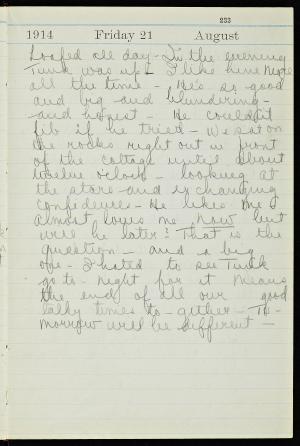 233
1914 Friday 21 August
Loafed all day - In the evening
Tink was up - I like him more
all the time - He's so good
and big and blundering -
and honest - He couldn't
fib if he tried - We sat on
the rocks right out in front
of the cottage until about
twelve o'clock - looking at
the stars and exchanging
confidences - He likes me &
almost loves me now but
will he later? That is the
question - and a big
one - I hated to see Tink
go to-night for it means
the end of all our good
tally times to-gether - To-
morrow will be different -